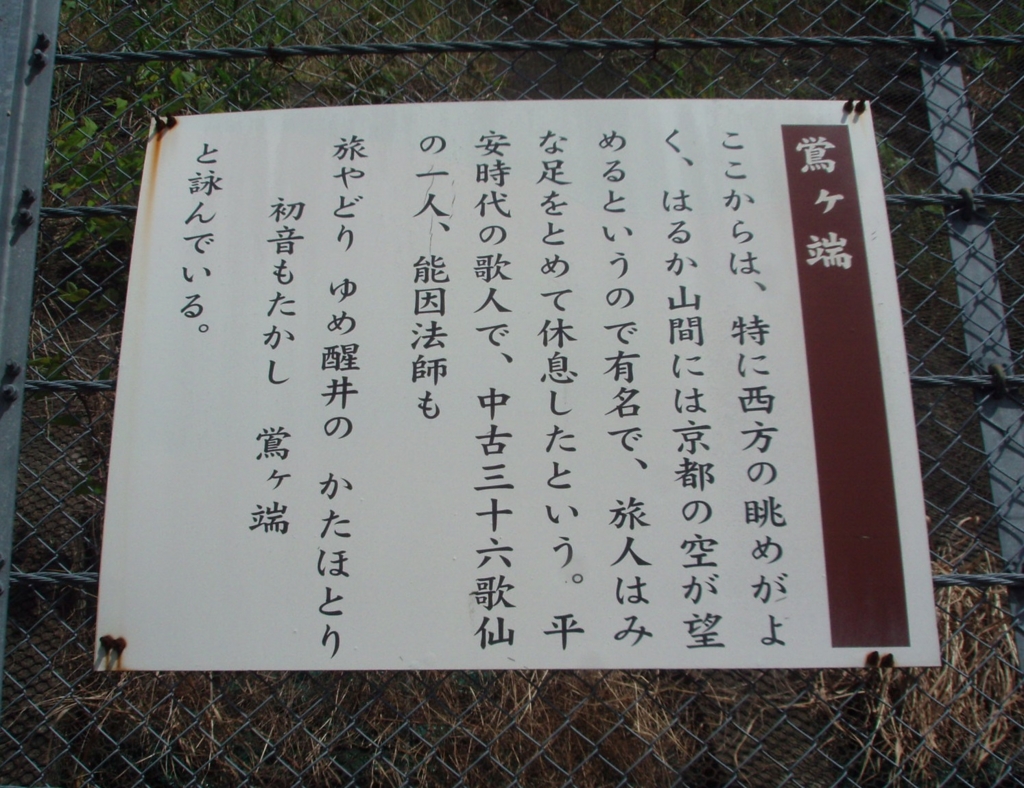 鶯ヶ端
ここからは、特に西方の眺めがよ
く、はるか山間には京都の空が望
めるというので有名で、旅人はみ
な足をとめて休息したという。平
安時代の歌人で、中古三十六歌仙
の一人、能因法師も
旅やどり ゆめ醒井の かたほとり
初音もたかし 鶯ヶ端
と詠んでいる。